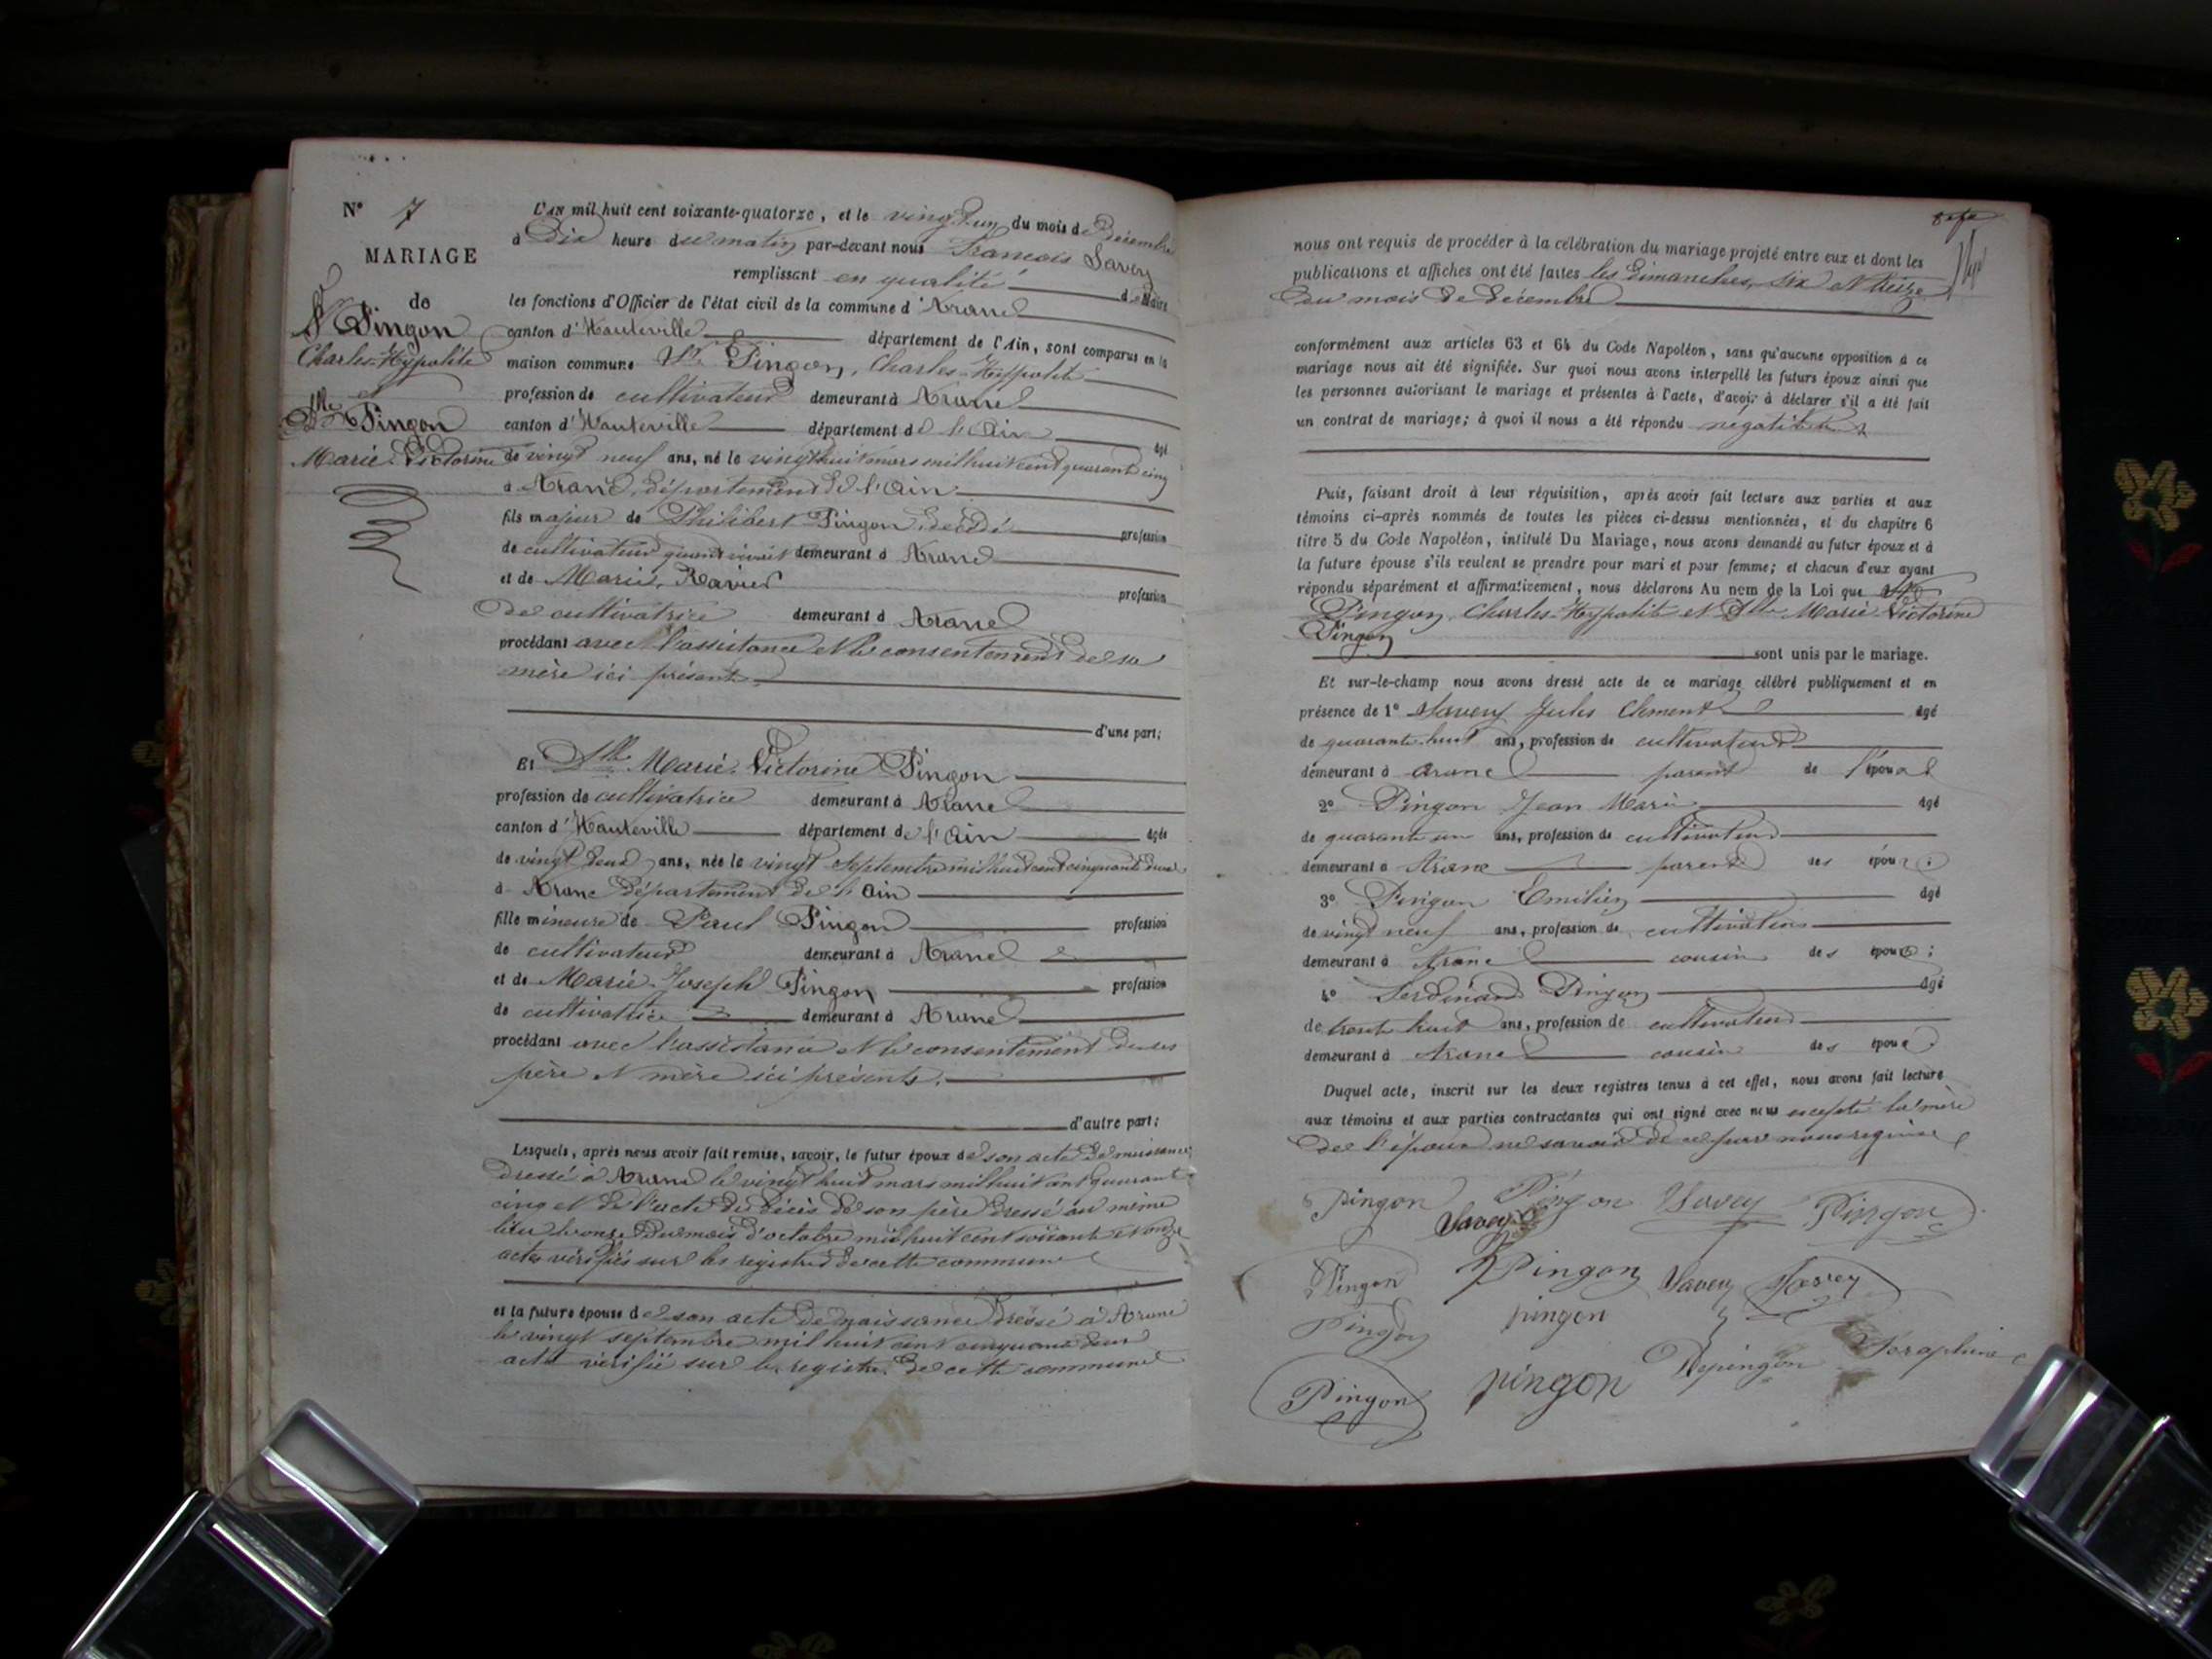 N° 7
MARIAGE
de
Sr Pingon
Charles-Hypolite
et
Dlle Pingon
Marie-Victorine
L'an mil huit cent soixante-quatorze, et le vingt un du mois de Décembre
à Dix heure du matin par-devant nous François Savey
remplissant en qualité de Maire
les fonctions d'Officier de l'état civil de la commune d'Aranc
canton d'Hauteville département de l'Ain, sont comparus en la
maison commune Sr Pingon, Charles-Hyppolite
profession de cultivateur demeurant à Aranc
canton d'Hauteville département de l'Ain âgé
de vingt neuf ans, né le vingt huit mars mil huit cent quarante cinq
à Aranc, département de l'Ain
fils majeur de Philibert Pingon, décédé profession
de cultivateur quand vivait demeurant à Aranc
et de Marie, Ravier profession
de cultivatrice demeurant à Aranc
procédant avec l'assistance et le consentement de sa
mère ici présente
d'une part;
Et Dlle Marie-Victorine Pingon
profession de cultivatrice demeurant à Aranc
canton d'Hauteville département de l'Ain âgée
de vingt deux ans, née le vingt septembre mil huit cent cinquante deux
à Aranc département de l'Ain
fille mineure de Paul Pingon profession
de cultivateur demeurant à Aranc
et de Marie-Joseph Pingon profession
de cultivatrice demeurant à Aranc
procédant avec l'assistance et le consentement de ses
père et mère ici présents.
d'autre part;
Lesquels, après nous avoir fait remise, savoir, le futur époux de son acte de naissance
dressé à Aranc le vingt huit mars mil huit cent quarante
cinq et de l'acte de décès de son père dressé au même
lieu le onze du mois d'octobre mil huit cent soixante et onze
actes vérifiés sur les registres de cette commune
et la future épouse de son acte de naissance dressé à Aranc
le vingt septembre mil huit cent cinquante deux
acte vérifié sur le registre de cette commune
nous ont requis de procéder à la célébration du mariage projeté entre eux et dont les
publications et affiches ont été faites les Dimanches, six et treize
du mois de décembre
conformément aux articles 63 et 64 du Code Napoléon, sans qu'aucune opposition à ce
mariage nous ait été signifiée. Sur quoi nous avons interpellé les futurs époux ainsi que
les personnes autorisant le mariage et présentes à l'acte, d'avoir à déclarer s'il a été fait
un contrat de mariage; à quoi il nous a été répondu négativement
Puis, faisant droit à leur réquisition, après avoir fait lecture aux parties et aux
témoins ci-après nommés de toutes les pièces ci-dessus mentionnées, et du chapitre 6
titre 5 du Code Napoléon, intitulé Du Mariage, nous avons demandé au futur époux et à
la future épouse s'ils veulent se prendre pour mari et pour femme; et chacun d'eux ayant
répondu séparément et affirmativement, nous déclarons Au nom de la Loi que Sr
Pingon, Charles-Hypolite et Dlle Marie-Victorine
Pingon
sont unis par le mariage.
Et sur-le-champ nous avons dressé acte de ce mariage célébré publiquement et en
présence de 1° Savey Jules Clement âgé
de quarante huit ans, profession de cultivateur
demeurant à Aranc parent de l'époux
2° Pingon Jean Marie âgé
de quarante un ans, profession de cultivateur
demeurant à Aranc parent des époux;
3° Pingon Emilien âgé
de vingt neuf ans, profession de cultivateur
demeurant à Aranc cousin des époux;
4° Ferdinand Pingon âgé
de trente huit ans, profession de cultivateur
demeurant à Aranc cousin des époux.
Duquel acte, inscrit sur les deux registres tenus à cet effet, nous avons fait lecture
aux témoins et aux parties contractantes qui ont signé avec nous excepté la mère
de l'époux ne savoir de ce par nous requise
Pingon Savey Pingon Savey Pingon
Pingon Pingon Savey
Pingon pingon
Pingon pingon Depingon Seraphine